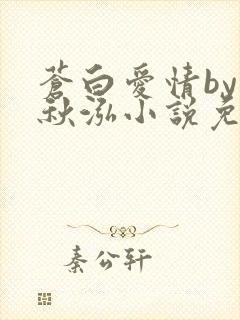 蒼白愛情by
秋泓小說免
秦公轩